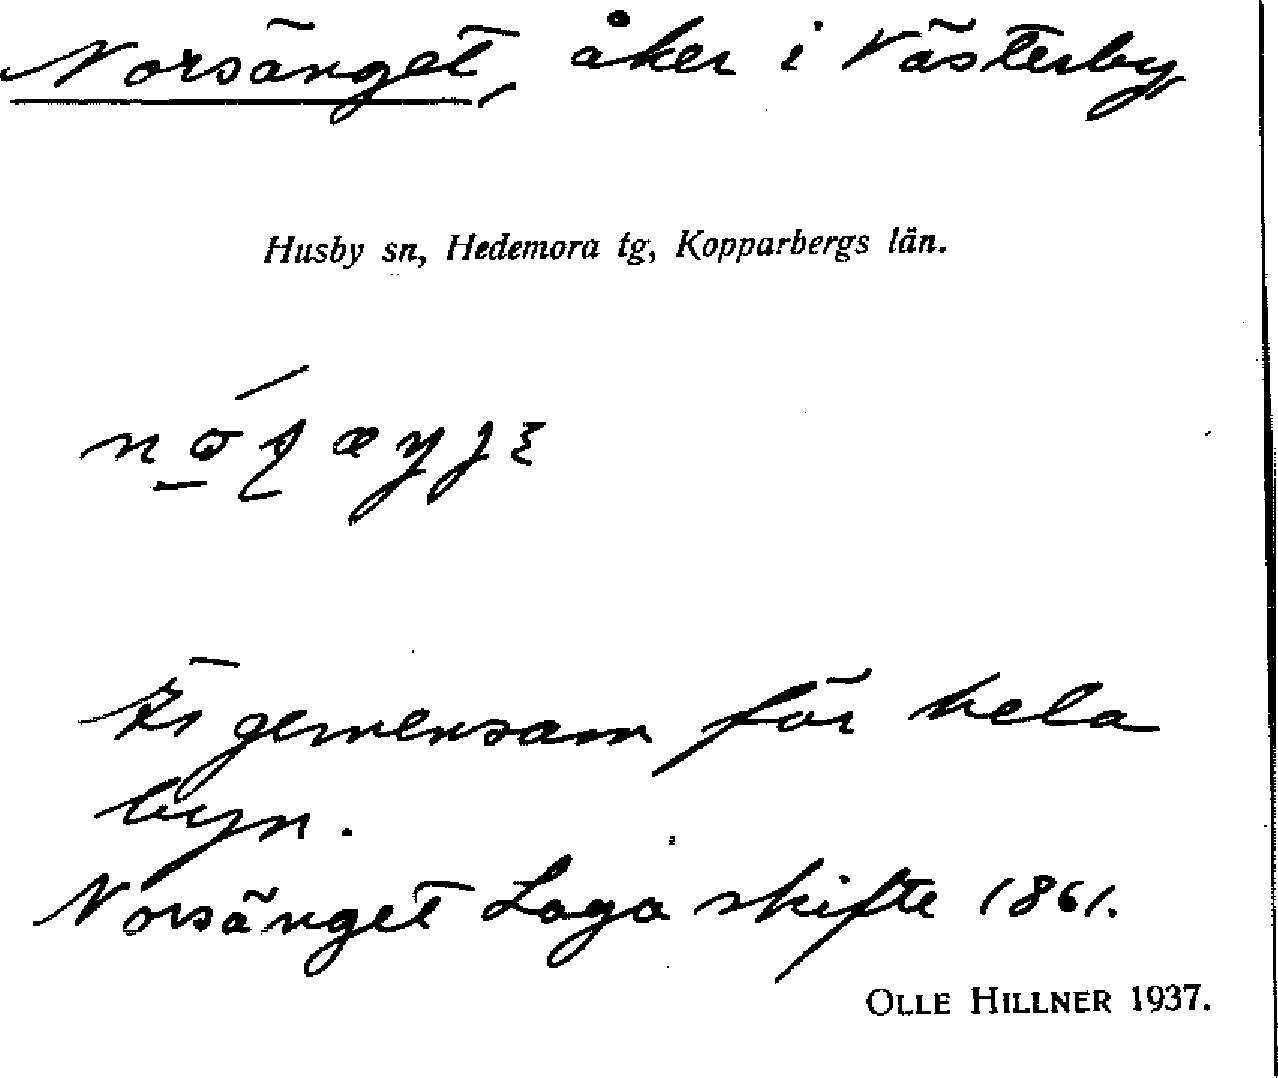 Norsänget, åker i Västerby,
Husby sn, Hedemora tg, Kopparbergs län.
Är gemensam för hela
byn.
Norsänget Laga skifte 1861.
OLLE HILLNER 1937.